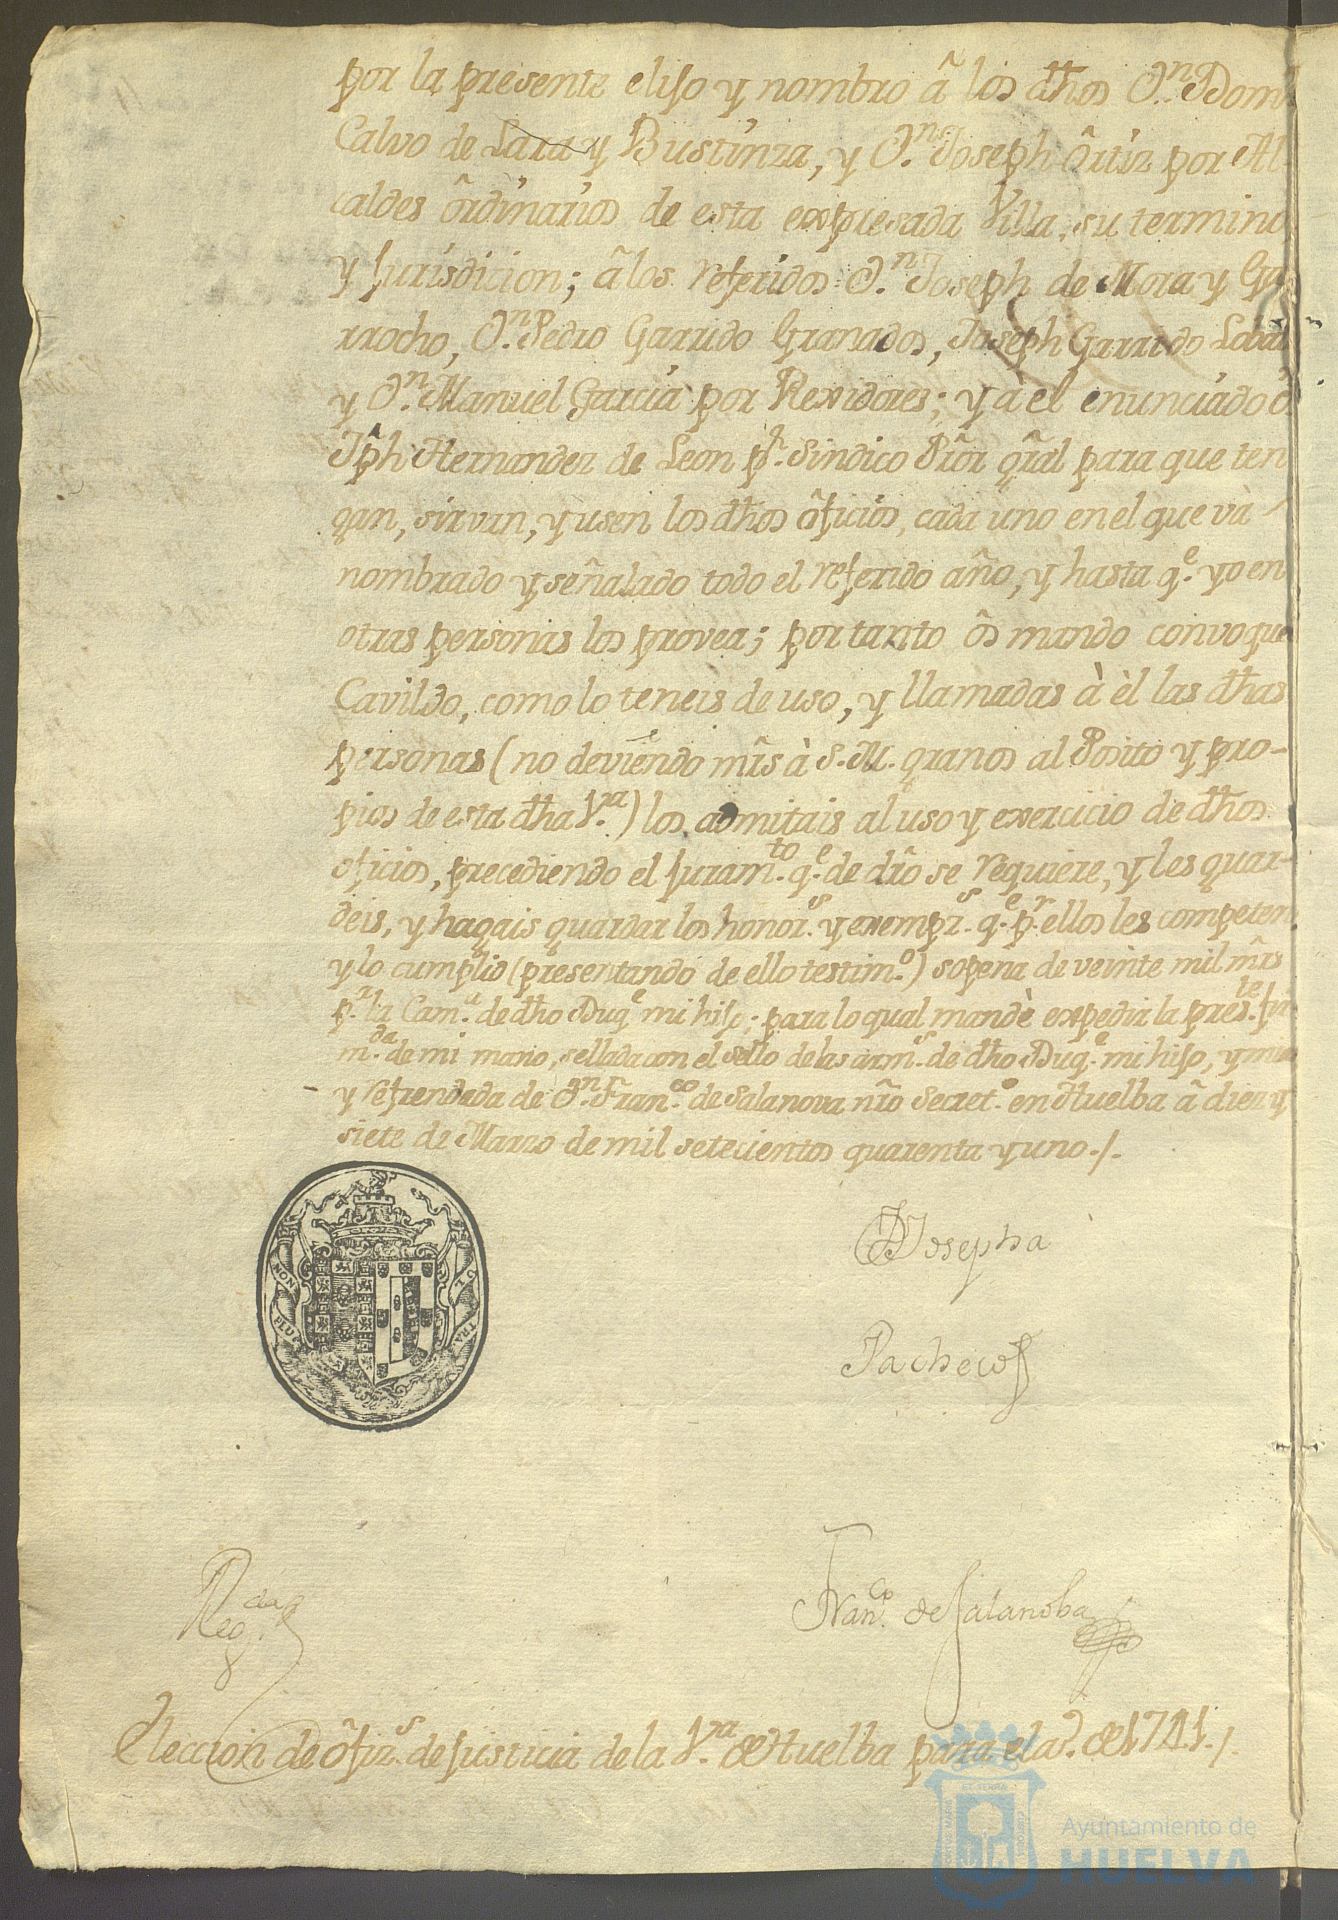 por la presente elijo y nombro â los dhos Dn. Dom
Calvo de Lara y Bustinza, y Dn. Joseph Ôrtiz por Al
caldes ôrdinarios de esta expresada Villa, su termino
y Jurisdicion; â los referidos Dn. Joseph de Mora y Ga
rrocho, Dn. Pedro Garrido Granados, Joseph Garrido Lobat
y Dn. Manuel Garcia por Rexidores; y à el enunciado D
Jph Hernandez de Leon pr. Sindico Prôr grâl para que ten
gan, sirvan, y usen los dhos ôficios, cada uno en el que và
nombrado y señalado todo el referido año, y hasta qe. yo en
otras personas los provea; por tanto ôs mando convoque
Cavildo, como lo teneis de uso, y llamadas à èl las dhas
personas (no deviendo mrs à S.M. granos al Posito y pro-
pios de esta dha Va.) los admitais al uso y exercicio de dhos
oficios, precediendo el Juramto. qe. de dro se requiere, y les guar-
deis, y hagais guardar los honors. y exempzs. qe. pr. ellos les competen
y lo cumplid (presentando de ello testimo.) so pena de veinte mil mrs
pa. la Cama. de dho Duqe mi hijo; para lo qual mandè expedir la preste. fir
mda. de mi mano, sellada con el sello de las arms. de dho Duqe. mi hijo, y mia
y refrendada de Dn. Franco. de Salanova nro Secreto. en Huelba â diez y
siete de Marzo de mil setecientos quarenta y uno./.
NON PLUS ULTRA
Josepha
Pacheco
Regda.
Franco. de Salanoba
Eleccion de ôfizs. de Justicia de la Va. de Huelba para el ao. de 1741./.
Ayuntamiento de
HUELVA